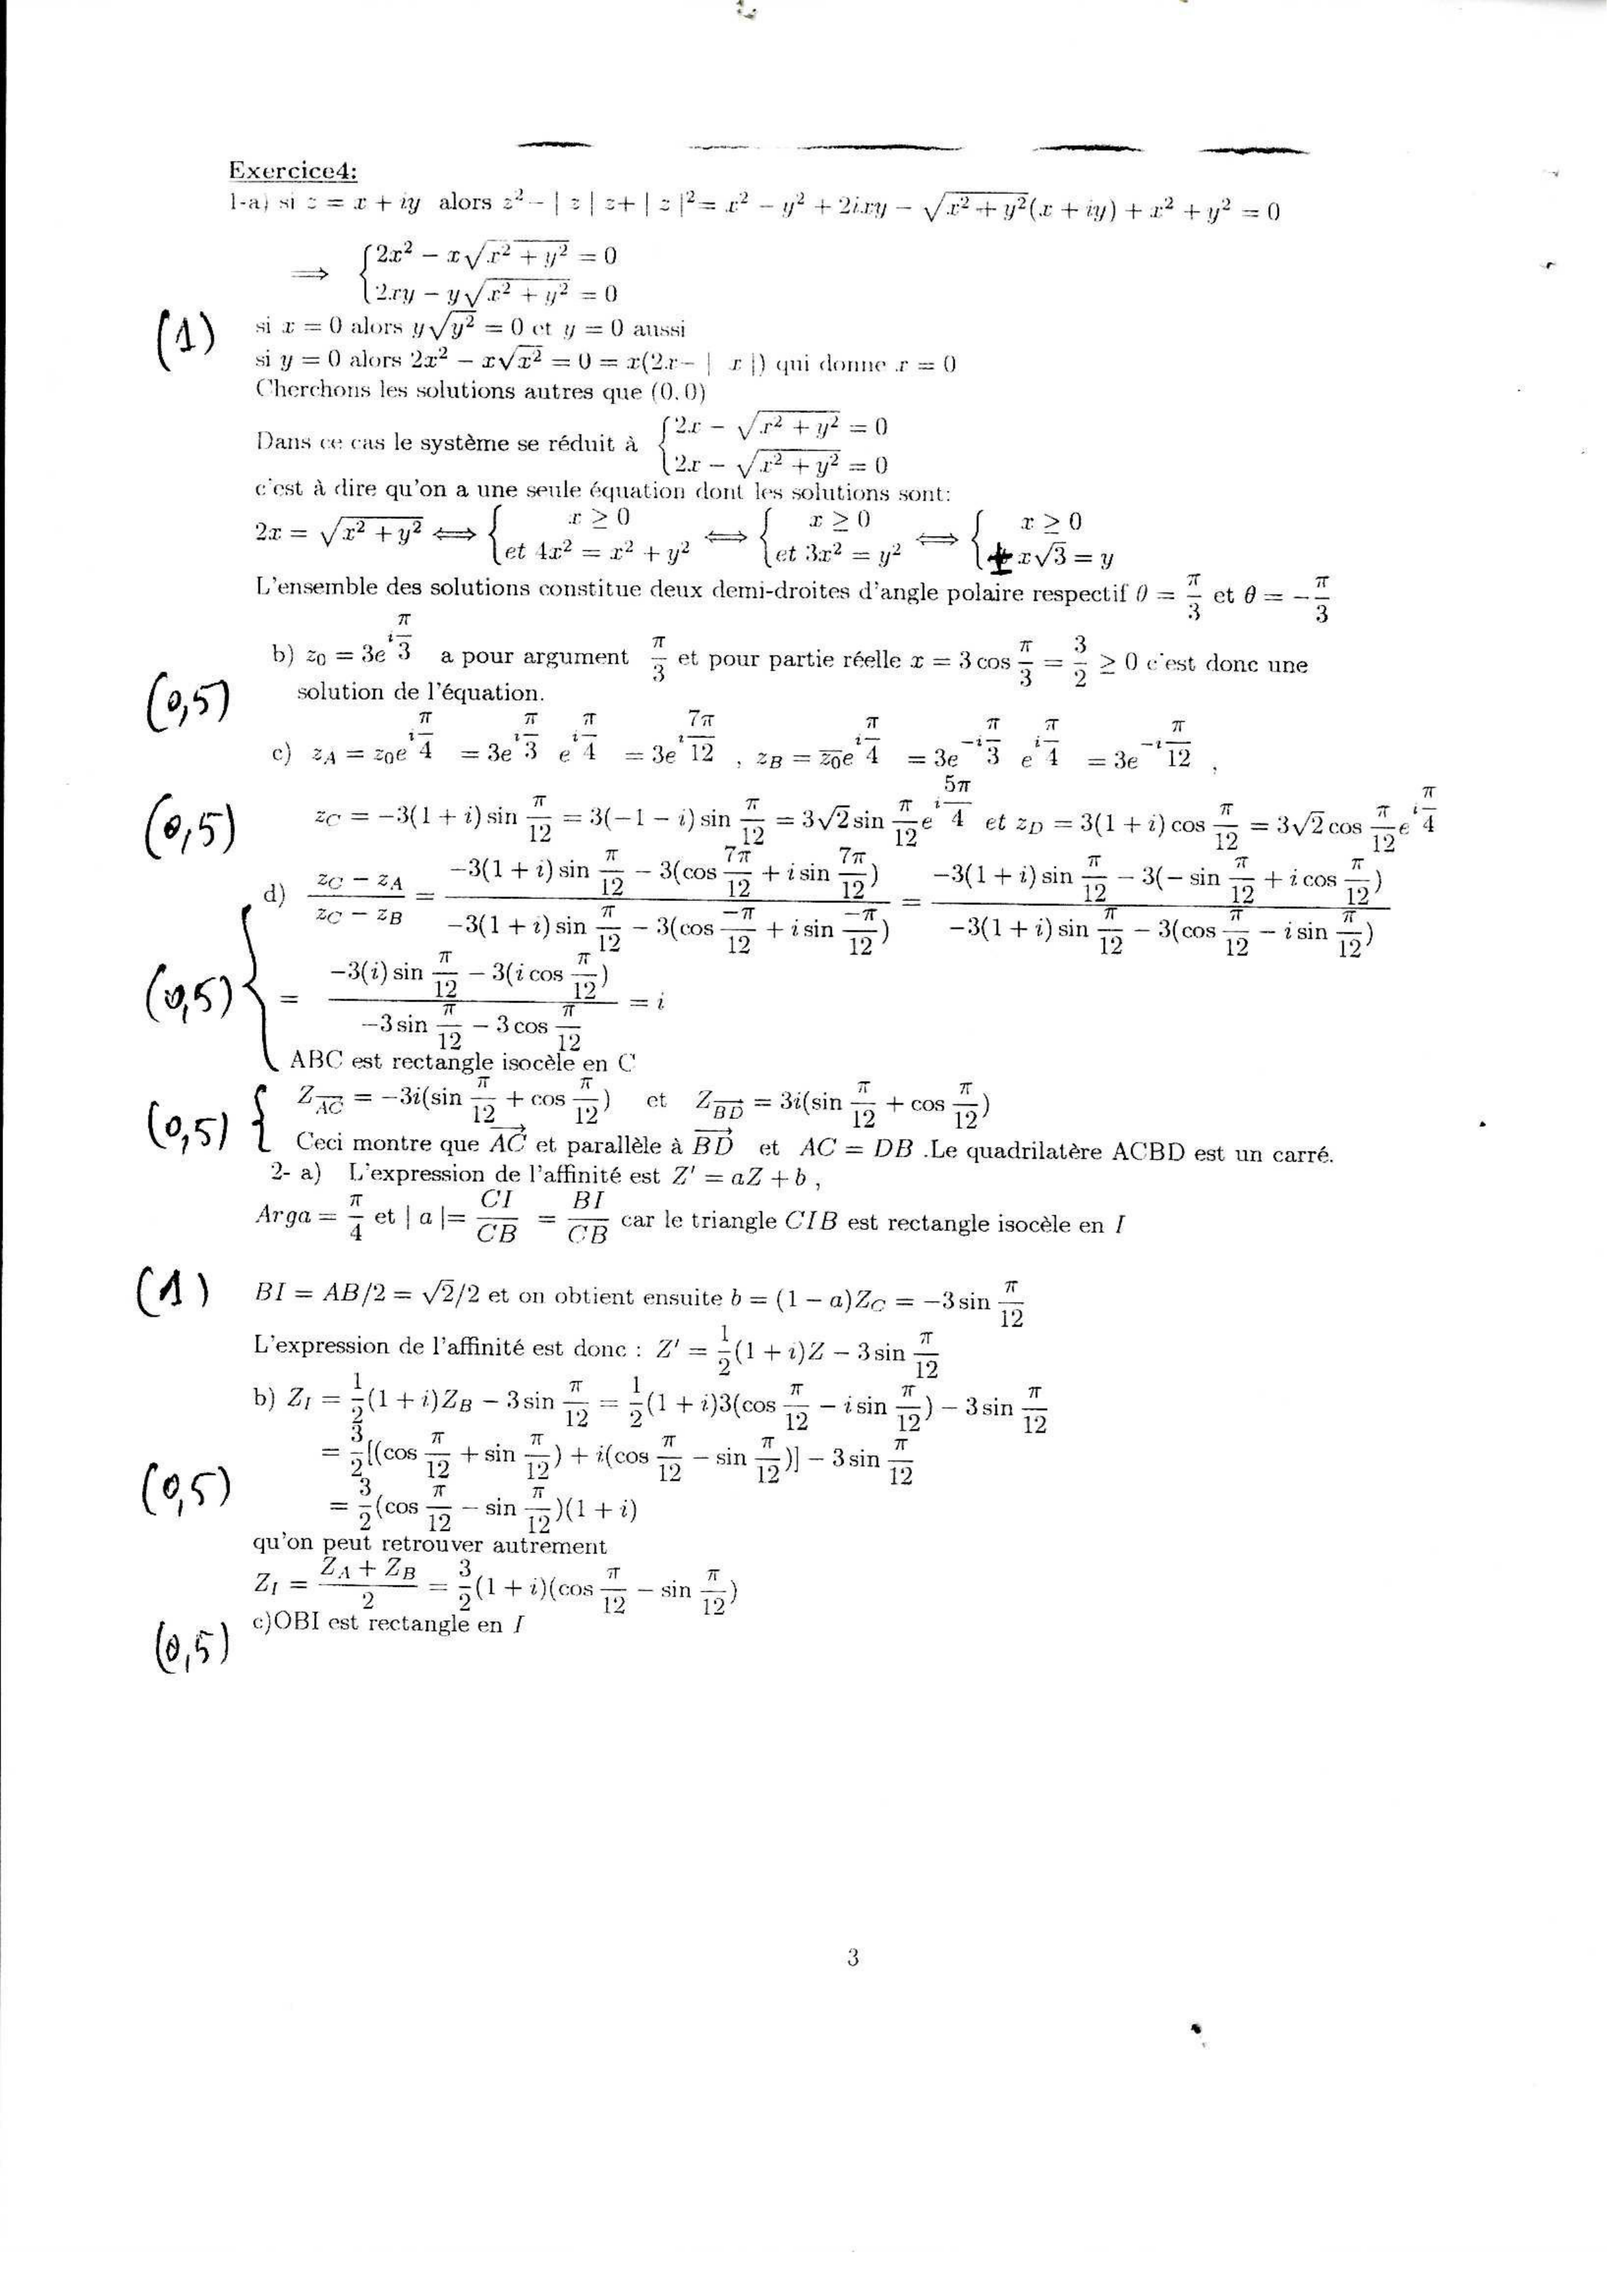 Exercice4:
1-a) si z = x + iy alors z² − | z | z+ | z |²= x² − y² + 2ixy − √(x² + y²)(x + iy) + x² + y² = 0
⟹ { 2x² − x√(x² + y²) = 0
2xy − y√(x² + y²) = 0
(1) si x = 0 alors y√(y²) = 0 et y = 0 aussi
si y = 0 alors 2x² − x√(x²) = 0 = x(2x− | x |) qui donne x = 0
Cherchons les solutions autres que (0.0)
Dans ce cas le système se réduit à { 2x − √(x² + y²) = 0
2x − √(x² + y²) = 0
c'est à dire qu'on a une seule équation dont les solutions sont:
2x = √(x² + y²) ⟺ { x ≥ 0 et 4x² = x² + y² ⟺ { x ≥ 0 et 3x² = y² ⟺ { x ≥ 0 ± x√3 = y
L'ensemble des solutions constitue deux demi-droites d'angle polaire respectif θ = π/3 et θ = −π/3
b) z₀ = 3e^(iπ/3) a pour argument π/3 et pour partie réelle x = 3 cos π/3 = 3/2 ≥ 0 c'est donc une
(0,5) solution de l'équation.
c) z_A = z₀e^(iπ/4) = 3e^(iπ/3) e^(iπ/4) = 3e^(i7π/12) , z_B = z̅₀e^(iπ/4) = 3e^(−iπ/3) e^(iπ/4) = 3e^(−iπ/12) ,
(0,5) z_C = −3(1 + i) sin π/12 = 3(−1 − i) sin π/12 = 3√2 sin π/12 e^(i5π/4) et z_D = 3(1 + i) cos π/12 = 3√2 cos π/12 e^(iπ/4)
d) (z_C − z_A)/(z_C − z_B) = (−3(1 + i) sin π/12 − 3(cos 7π/12 + i sin 7π/12))/(−3(1 + i) sin π/12 − 3(cos −π/12 + i sin −π/12)) = (−3(1 + i) sin π/12 − 3(− sin π/12 + i cos π/12))/(−3(1 + i) sin π/12 − 3(cos π/12 − i sin π/12))
(0,5) { = (−3(i) sin π/12 − 3(i cos π/12))/(−3 sin π/12 − 3 cos π/12) = i
ABC est rectangle isocèle en C
Z_AC⃗ = −3i(sin π/12 + cos π/12) et Z_BD⃗ = 3i(sin π/12 + cos π/12)
(0,5) { Ceci montre que AC⃗ et parallèle à BD⃗ et AC = DB .Le quadrilatère ACBD est un carré.
2- a) L'expression de l'affinité est Z′ = aZ + b ,
Arga = π/4 et | a |= CI/CB = BI/CB car le triangle CIB est rectangle isocèle en I
(1) BI = AB/2 = √2/2 et on obtient ensuite b = (1 − a)Z_C = −3 sin π/12
L'expression de l'affinité est donc : Z′ = 1/2(1 + i)Z − 3 sin π/12
b) Z_I = 1/2(1 + i)Z_B − 3 sin π/12 = 1/2(1 + i)3(cos π/12 − i sin π/12) − 3 sin π/12
= 3/2[(cos π/12 + sin π/12) + i(cos π/12 − sin π/12)] − 3 sin π/12
(0,5) = 3/2(cos π/12 − sin π/12)(1 + i)
qu'on peut retrouver autrement
Z_I = (Z_A + Z_B)/2 = 3/2(1 + i)(cos π/12 − sin π/12)
(0,5) c)OBI est rectangle en I
3